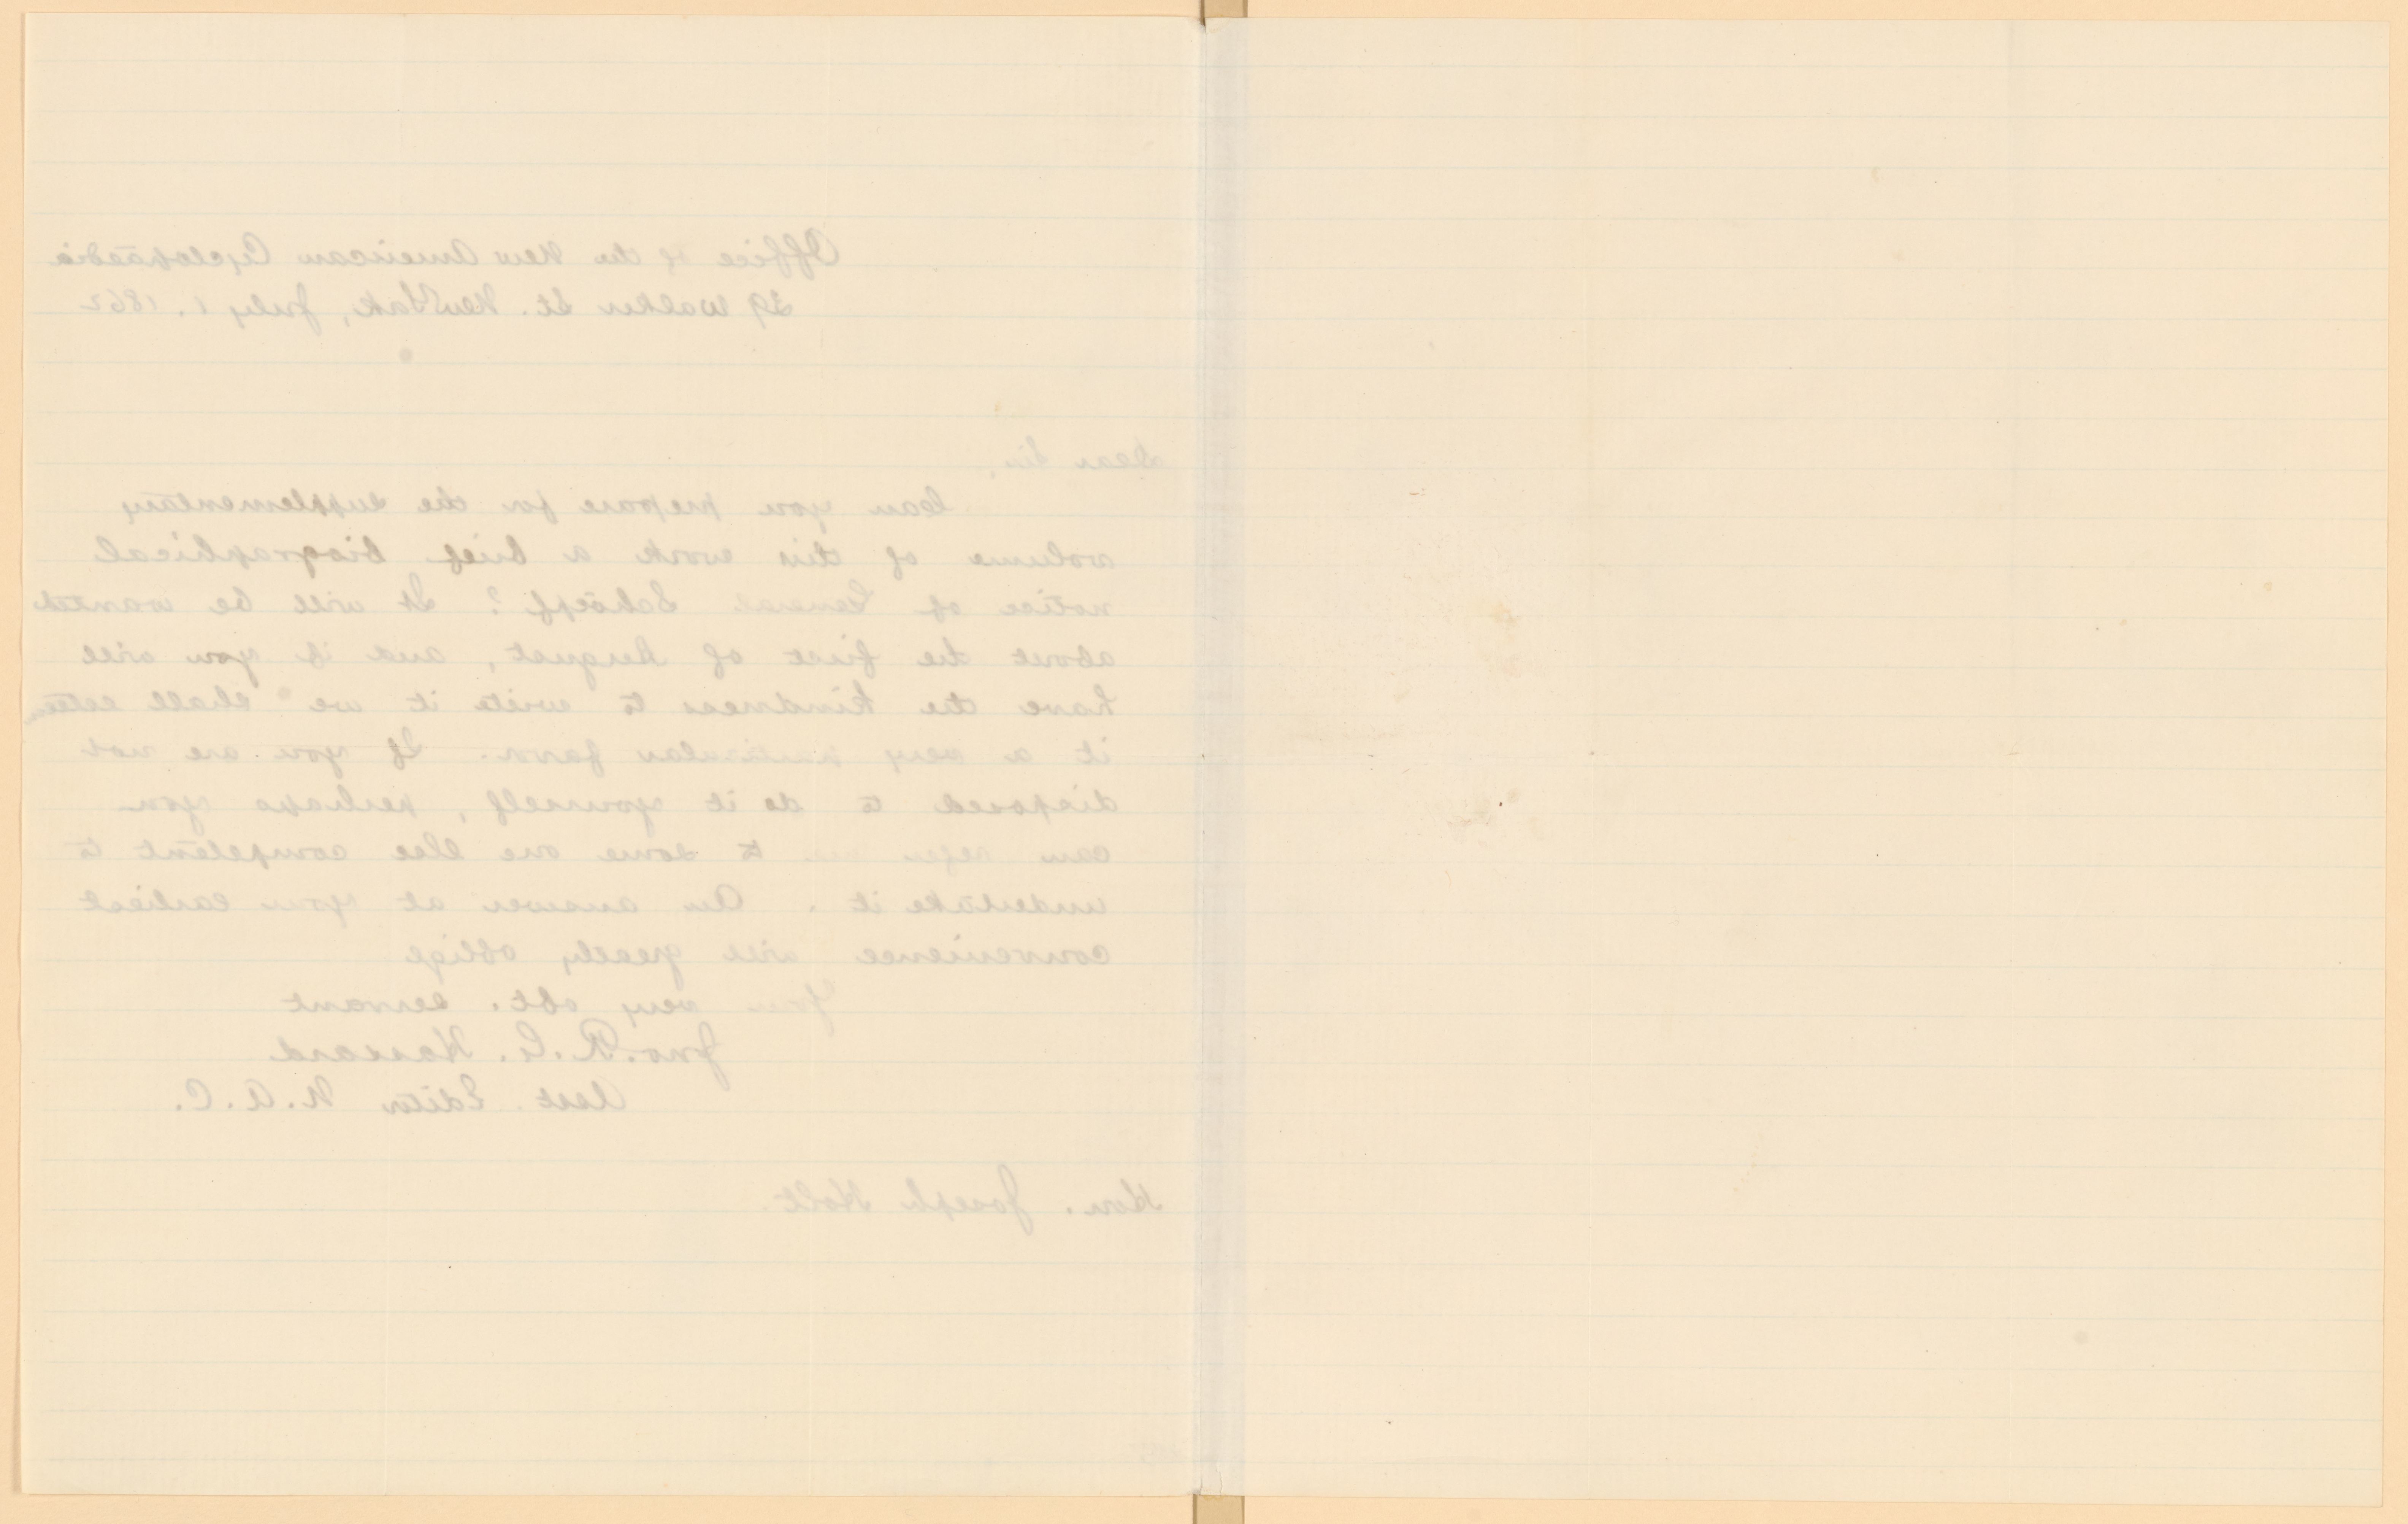 Office of the New American Cyclopaedia
39 Walker St. New York, July 1. 1862
Dear Sir,
Can you prepare for the supplementary
volume of this work a brief biographical
notice of General Schoepf? It will be wanted
about the first of August, and if you will
have the kindness to write it we shall esteem
it a very particular favor. If you are not
disposed to do it yourself, perhaps you
can refer me to some one else competent to
undertake it. An answer at your earliest
convenience will greatly oblige
Your very obt. servant
Jno. R. G. Hassard
Asst. Editor N. A. C.
Hon. Joseph Holt.